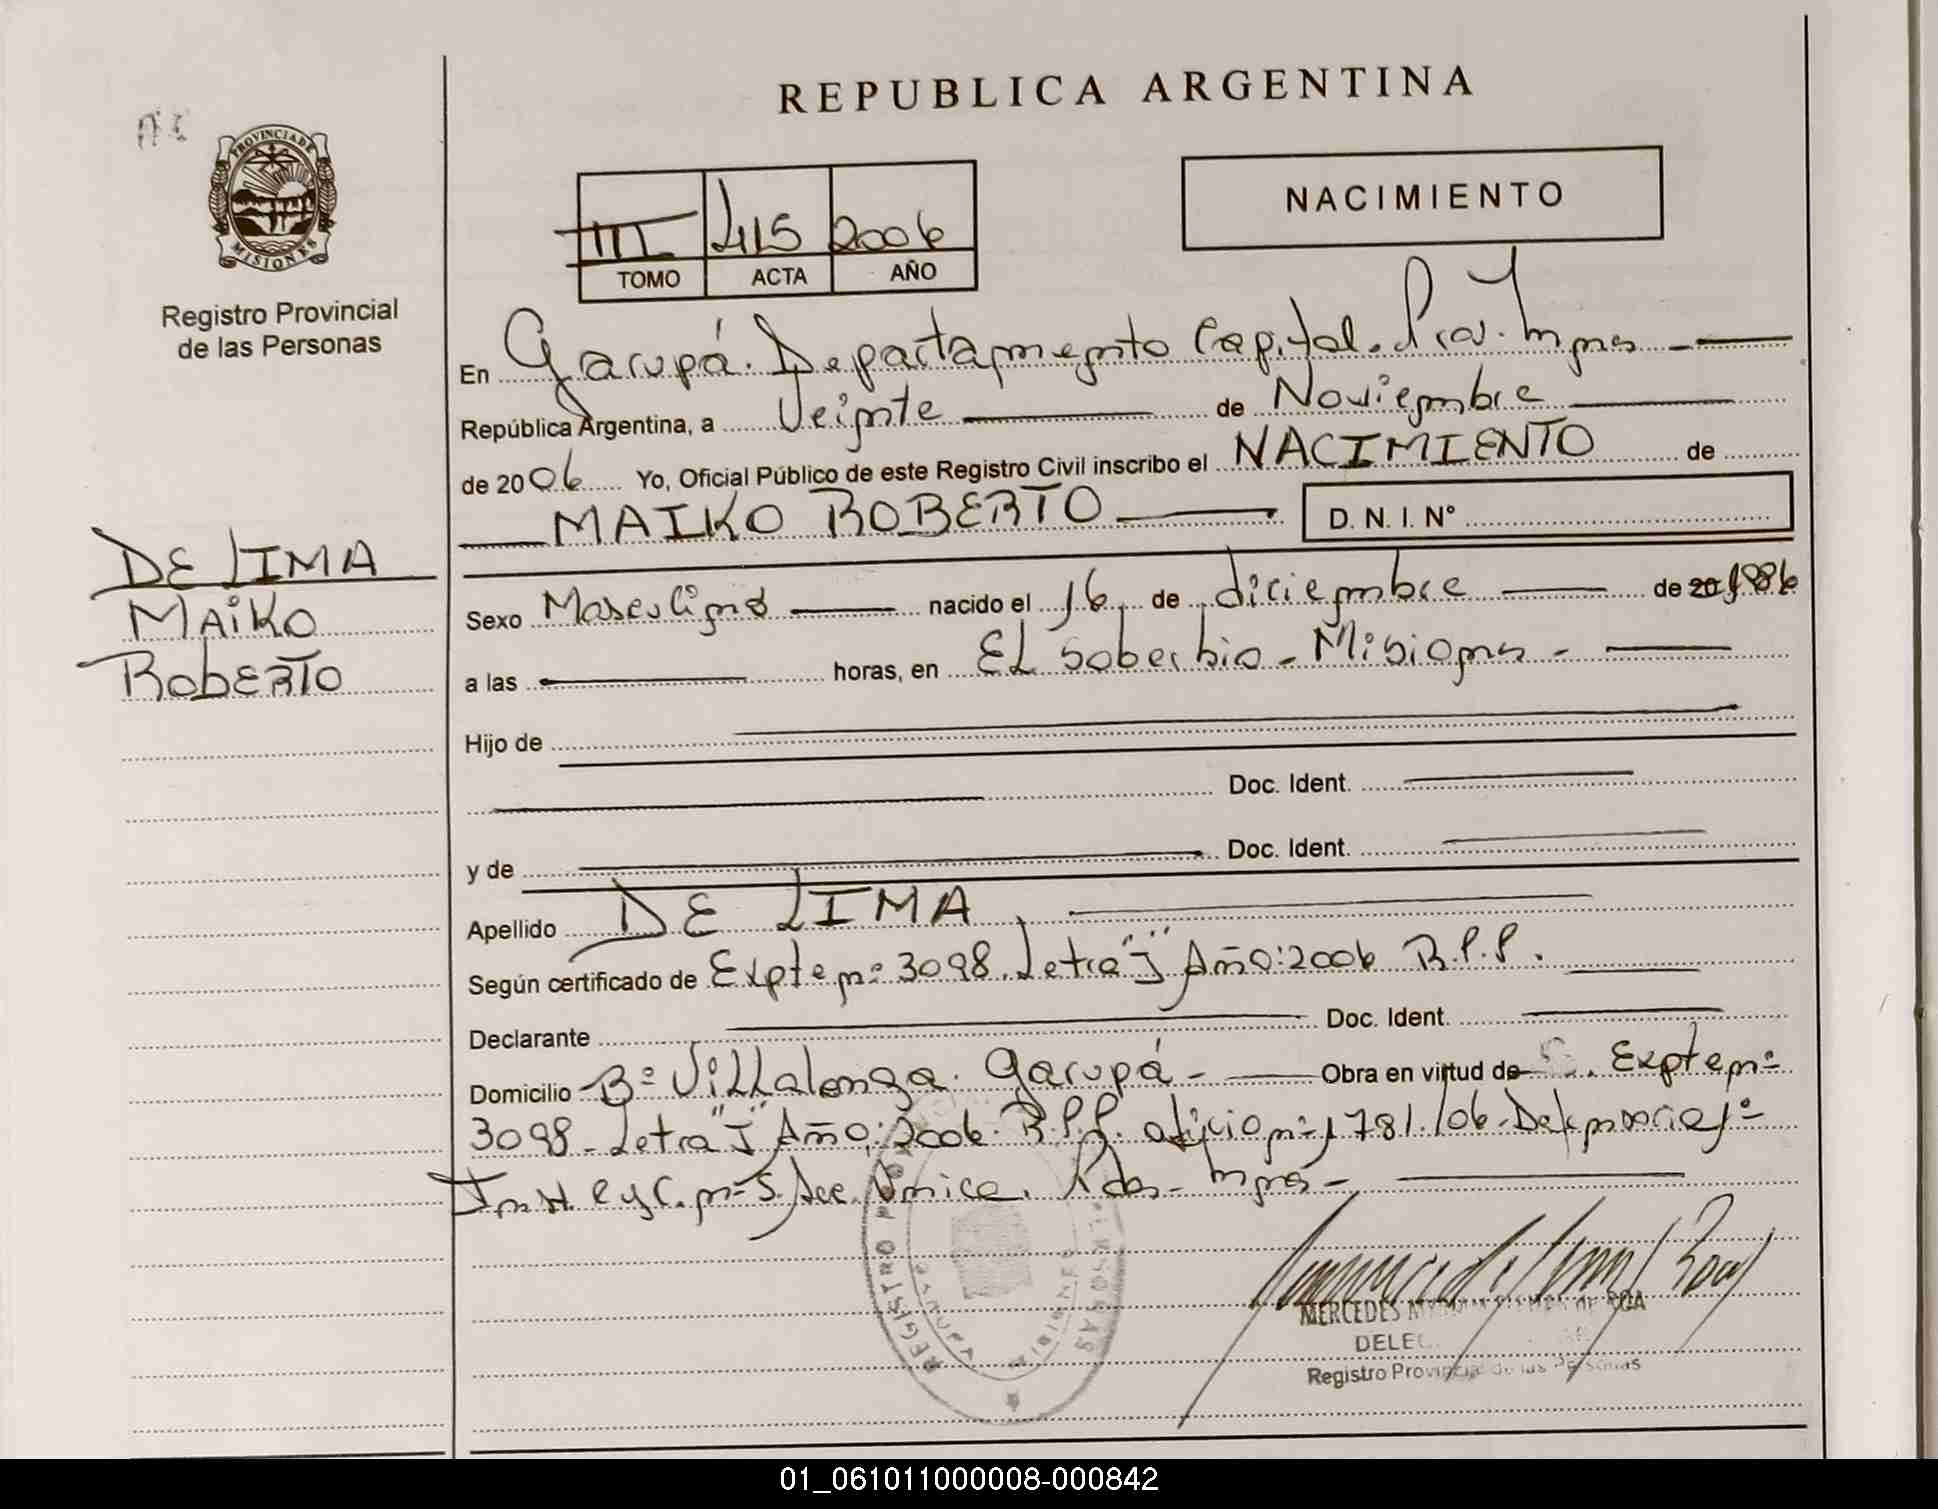 REPUBLICA ARGENTINA
PROVINCIA DE
MISIONES
Registro Provincial
de las Personas
III 415 2006
TOMO ACTA AÑO
NACIMIENTO
En Garupá. Departamento Capital. Prov. Mnes
República Argentina, a Veinte de Noviembre
de 2006 Yo, Oficial Público de este Registro Civil inscribo el NACIMIENTO de
MAIKO ROBERTO
D. N. I. N°
DE LIMA
MAiKO
RobERTO
Sexo Masculino nacido el 16 de diciembre de 20 1986
a las horas, en EL Soberbio - Misiones -
Hijo de
Doc. Ident.
y de Doc. Ident.
Apellido DE LIMA
Según certificado de Expte nº 3098. Letra "J" Año: 2006 R.P.P.
Declarante Doc. Ident.
Domicilio Bº Villalonga. Garupá - Obra en virtud de Expte nº
3098 - Letra "J" Año: 2006. R.P.P. oficio nº 1781/06. Defensoria
Inst. C y C. nº 5. Sec. Única. Pdas - Mnes -
REGISTRO PERSONAS
MERCEDES DE ROA
Registro Provincial de las Personas
01_061011000008-000842